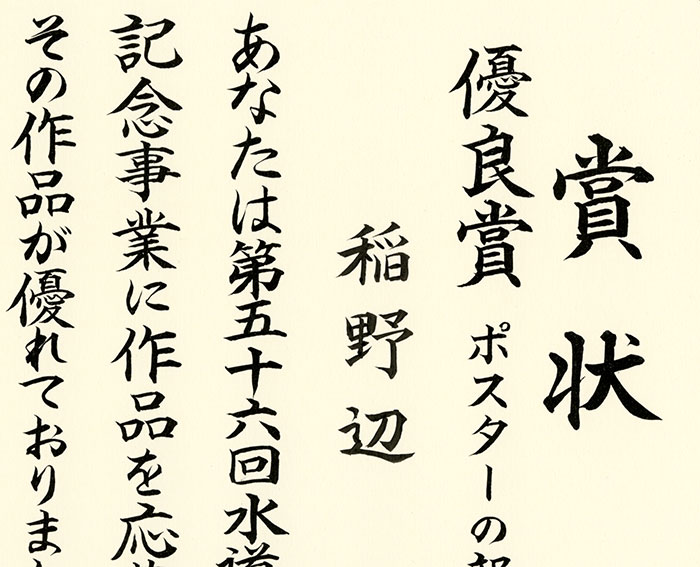 賞状
優良賞 ポスターの
稲野辺
あなたは第五十六回水道
記念事業に作品を応
その作品が優れておりま